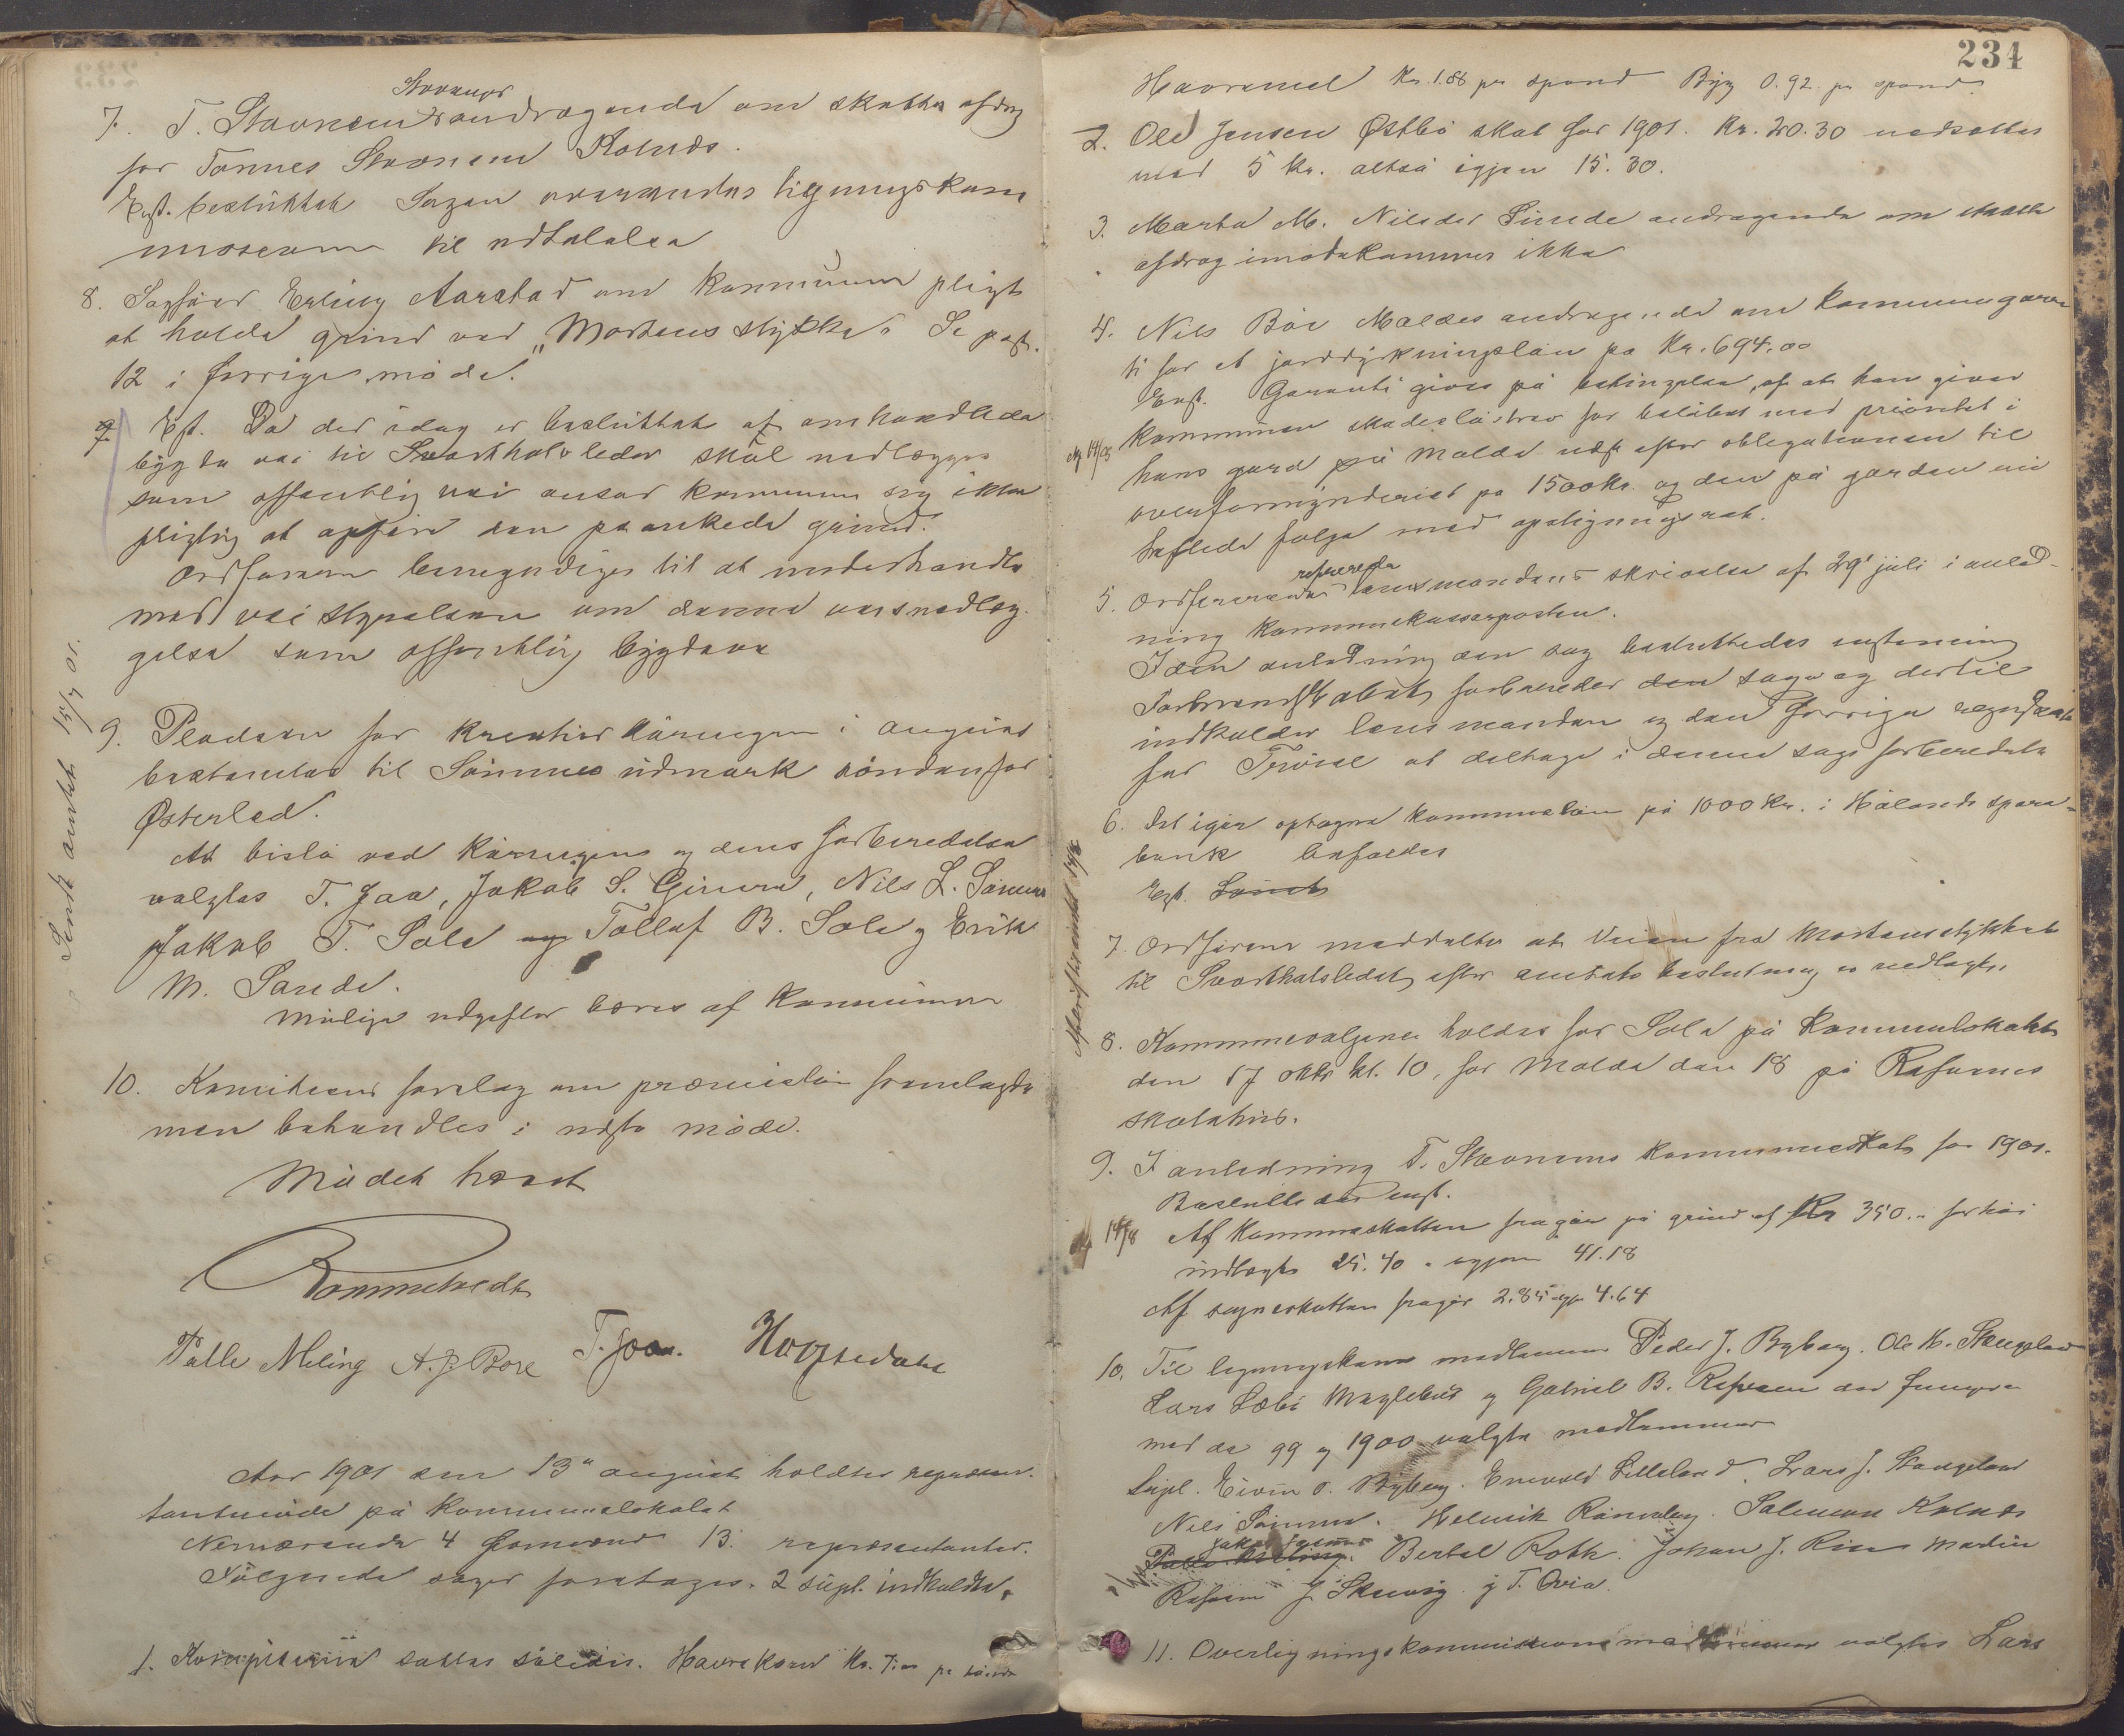 Stavanger
7. T. Stavnems andragende om skatteafdrag
for Tønnes Stavnem Kolnæs.
Enst. besluttet Sagen oversendes ligningskom
missionen til udtalelse
8. Sagfører Erling Aarstad om kommunens pligt
at holde grind ved "Mortens stykke" Se post.
12 i forrige møde.
Est. Da der idag er besluttet af omhandlede
bygdevei til Svorthols ledet skal nedlægges
som offentlig vei anser kommunen sig ikke
pligtig at opføre den paankede grind.
Ordføreren bemyndiges til at underhandle
med veistyrelsen om denne veis nedlæg-
gelse som offentlig bygdevei
Sendt amtet 15/7 01.
9. Pladsen for kreaturkåringen i august
bestemtes til Sømmes udmark søndenfor
Østerled.
At bistå ved kåringen og dens forberedelse
valgtes T. Joa, Jakob S. Gimre, Nils L. Sømme
Jakob T. Sola og Tollef B. Sola og Erik
M. Sande.
Mulige udgifter bæres af kommunen
10. Komiteens forslag om præmielån fremlagdes
men behandles i næste møde.
Mødet hævet
Rommetvedt
Palle Meling A. J. Bore T. Joa. Hogstedahl
Aar 1901 den 13de august holdtes repræsen-
tantmøde på kommunelokalet
Nærværende 4 formænd 13. repræsentanter.
Følgende sager foretages. 2 supl. indkaldte.
1. Kornprisene sattes således. Havrekorn Kr. 7.00 pr tønde
234
Havremel Kr. 1.86 pr spand Byg 0.92 pr spand.
2. Ole Jensen Østbø skat for 1901. Kr. 20.30 nedsattes
med 5 kr. altså igjen 15.30.
3. Marta M. Nilsdr Sunde andragende om skatte
afdrag imødekommes ikke
4. Nils Bøe Maldes andragende om kommunegaran
ti for et jorddyrkningslån på Kr. 694.00
Enst. Garanti gives på betingelse af at han giver
kommunen skadesløsbrev for beløbet med prioritet i
hans gård på Malde næst efter obligationen til
overformynderiet på 1500 kr. og den på gården nu
heftede følge med opsigningsret.
5. Ordføreren refererede lensmandens skrivelse af 29' juli i anled-
ning kommunekasserposten.
I den anledning den sag besluttedes enstemmig
Formandskabet forbereder den sagen og dertil
indkalder lensmanden og den forrige regnskabs
fører Trovåg at deltage i denne sags forberedelse
6. Det igår optagne kommunelån på 1000 Kr. i Hålands spare-
bank
Egst. Lånet
7. Ordføreren meddelte at Veien fra Mortensstykket
til Svortholsledet efter amtets beslutning er nedlagt.
8. Kommunevalgene holdes for Sola på kommunelokalet
den 17 oktb kl. 10, for Malde den 18 på Refsnes
skolehus.
9. I anledning T. Stavnems kommuneskat for 1901.
Besluttedes enst.
14/8 Af Kommuneskatten fragår på grund af Kr 350.. forhøi
indtægt 25.40 - igjen 41.18
Af sogneskatten fragår 2.85 igjen 4.64
10. Til ligningskom medlemmer Peder J. Byberg. Ole H. Stangeland
Lars Sæbø Myglebust og Gabriel B. Refsnes der fungere
med de 99 og 1900 valgte medlemmer
Supl. Eivin O. Byberg. Enevald Lilleland. Lars J. Stangeland
Nils Sømme. Helmik Røineberg. Salemon Kolnæs
Jakob Sømme
Palle Meling. Bertel Roth. Johan J. Risa Martin
Refsnes J. Skeivig og T. Ovia.
11. Overligningskommissionsmedlemmer valgtes Lars